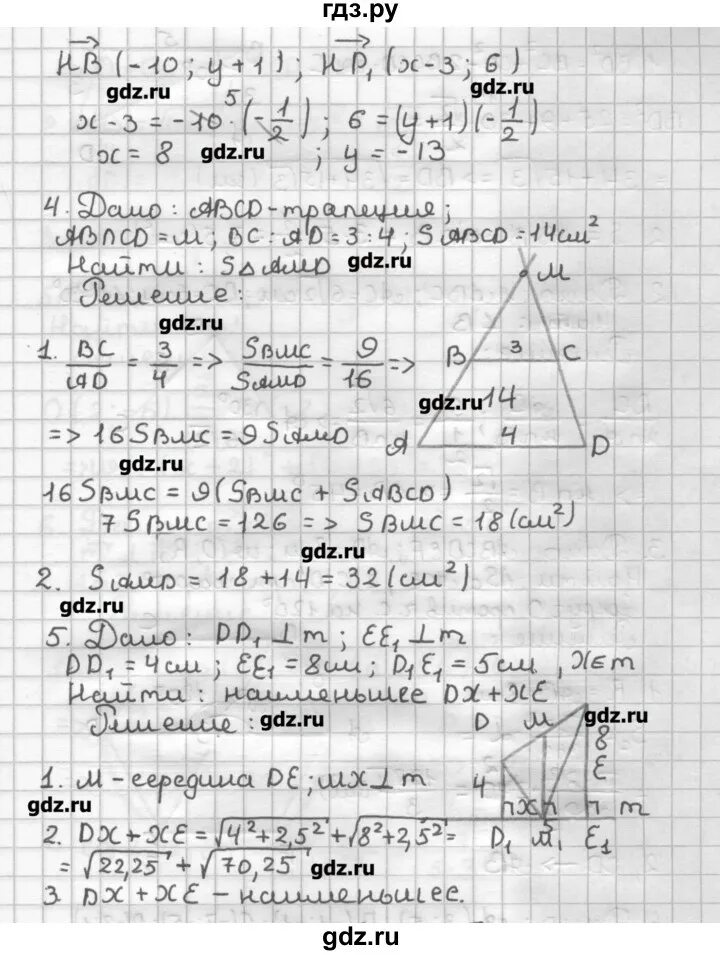 гдз.ру
HB (-10; y+1); HD₁ (x-3; 6)
gdz.ru gdz.ru
x-3 = -10⁵·(-1/2); 6 = (y+1)(-1/2)
x = 8 gdz.ru ; y = -13
4. Дано: ABCD-трапеция;
AB∩CD = M; BC:AD = 3:4; SABCD = 14см²
Найти: S△AMD gdz.ru
Решение:
M
gdz.ru
1. BC/AD = 3/4 => SBMC/SAMD = 9/16 =>
B 3 C
gdz.ru 14
=> 16SBMC = 9SAMD
A 4 D
gdz.ru
16SBMC = 9(SBMC + SABCD)
7SBMC = 126 => SBMC = 18(см²)
gdz.ru
2. SAMD = 18+14 = 32(см²)
gdz.ru
5. Дано: DD₁⊥m; EE₁⊥m
DD₁ = 4см; EE₁ = 8см; D₁E₁ = 5см, X∈m
Найти: наименьшее DX+XE
Решение: gdz.ru
D M gdz.ru
8
E
4
1. M-середина DE; MX⊥m
gdz.ru
X m
D₁ M₁ E₁
2. DX+XE = √4²+2,5² + √8²+2,5² =
= √22,25 + √70,25 gdz.ru
3 DX+XE - наименьшее.
gdz.ru